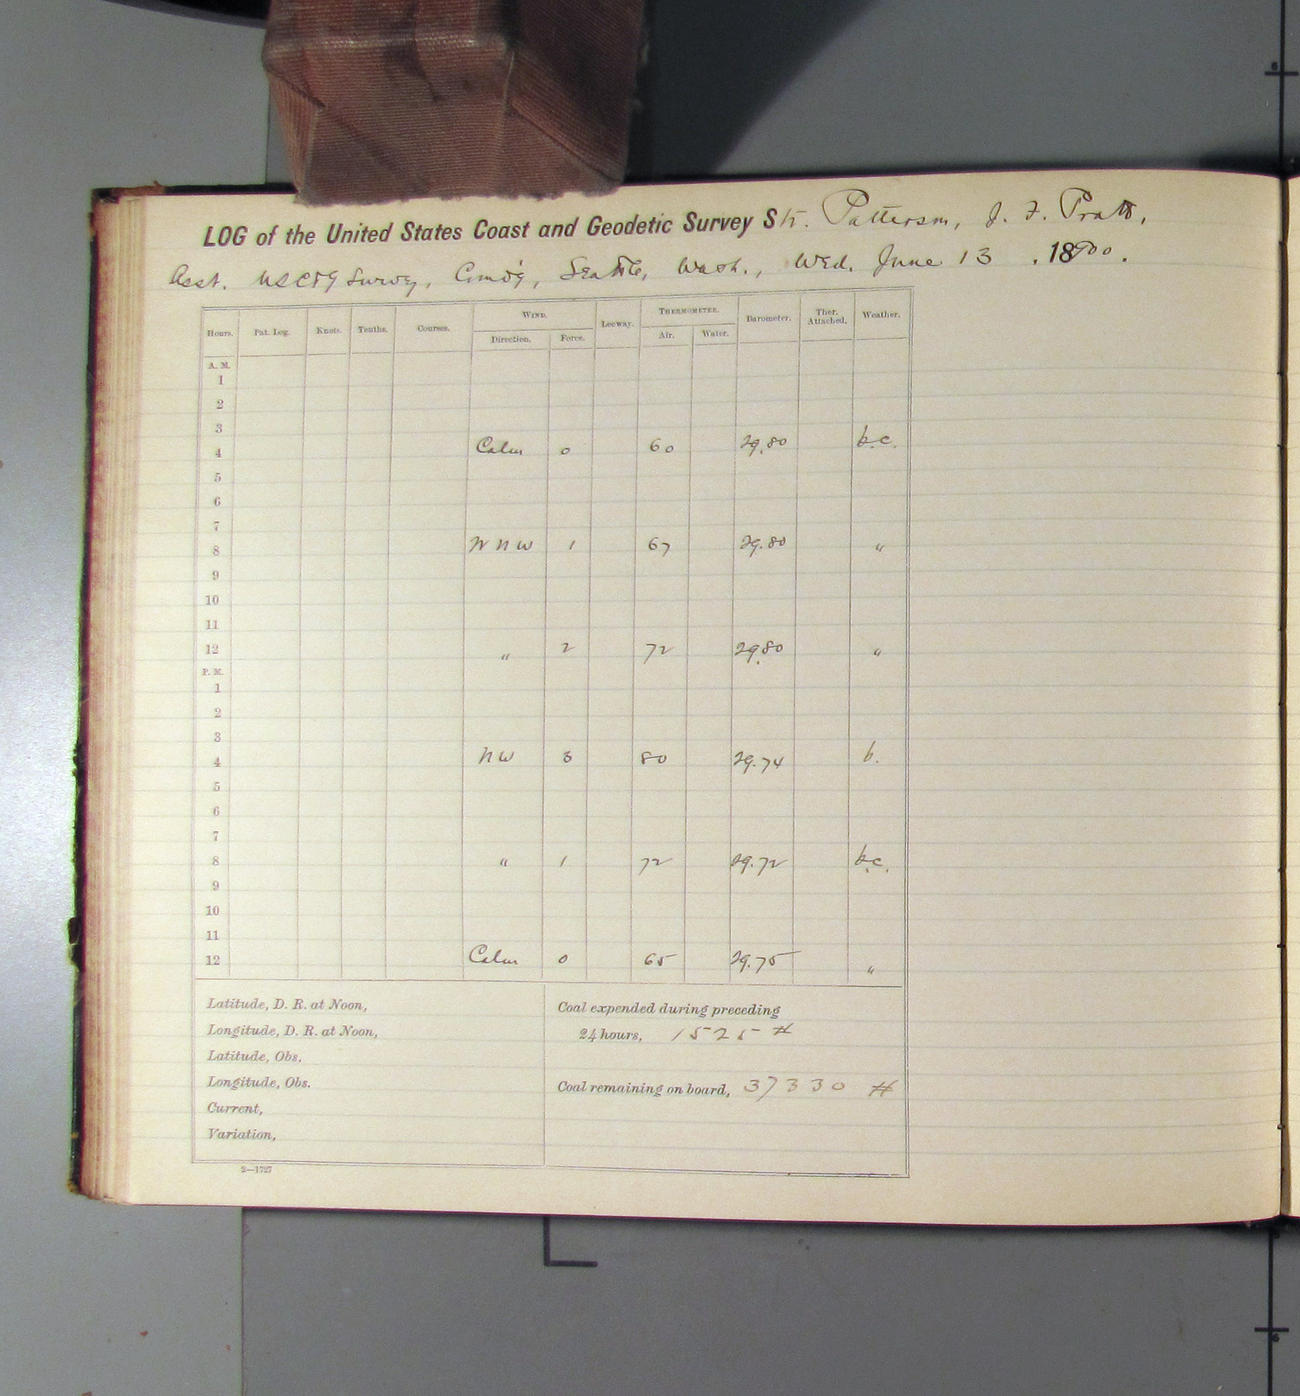 LOG of the United States Coast and Geodetic Survey Str. Patterson, J. F. Pratt,
Asst. USC&G Survey, Comd'g, Seattle, Wash., Wed. June 13, 1900.
Hours. Pat. Log. Knots. Tenths. Courses. WIND. Leeway. THERMOMETER. Barometer. Ther. Attached. Weather.
Direction. Force. Air. Water.
A. M.
1
2
3
4 Calm 0 60 29.80 b.c.
5
6
7
8 WNW 1 67 29.80 "
9
10
11
12 " 2 72 29.80 "
P. M.
1
2
3
4 NW 3 80 29.74 b.
5
6
7
8 " 1 72 29.72 b.c.
9
10
11
12 Calm 0 65 29.75 "
Latitude, D. R. at Noon,
Longitude, D. R. at Noon,
Latitude, Obs.
Longitude, Obs.
Current,
Variation,
Coal expended during preceding
24 hours, 1525 #
Coal remaining on board, 37330 #
2—1727